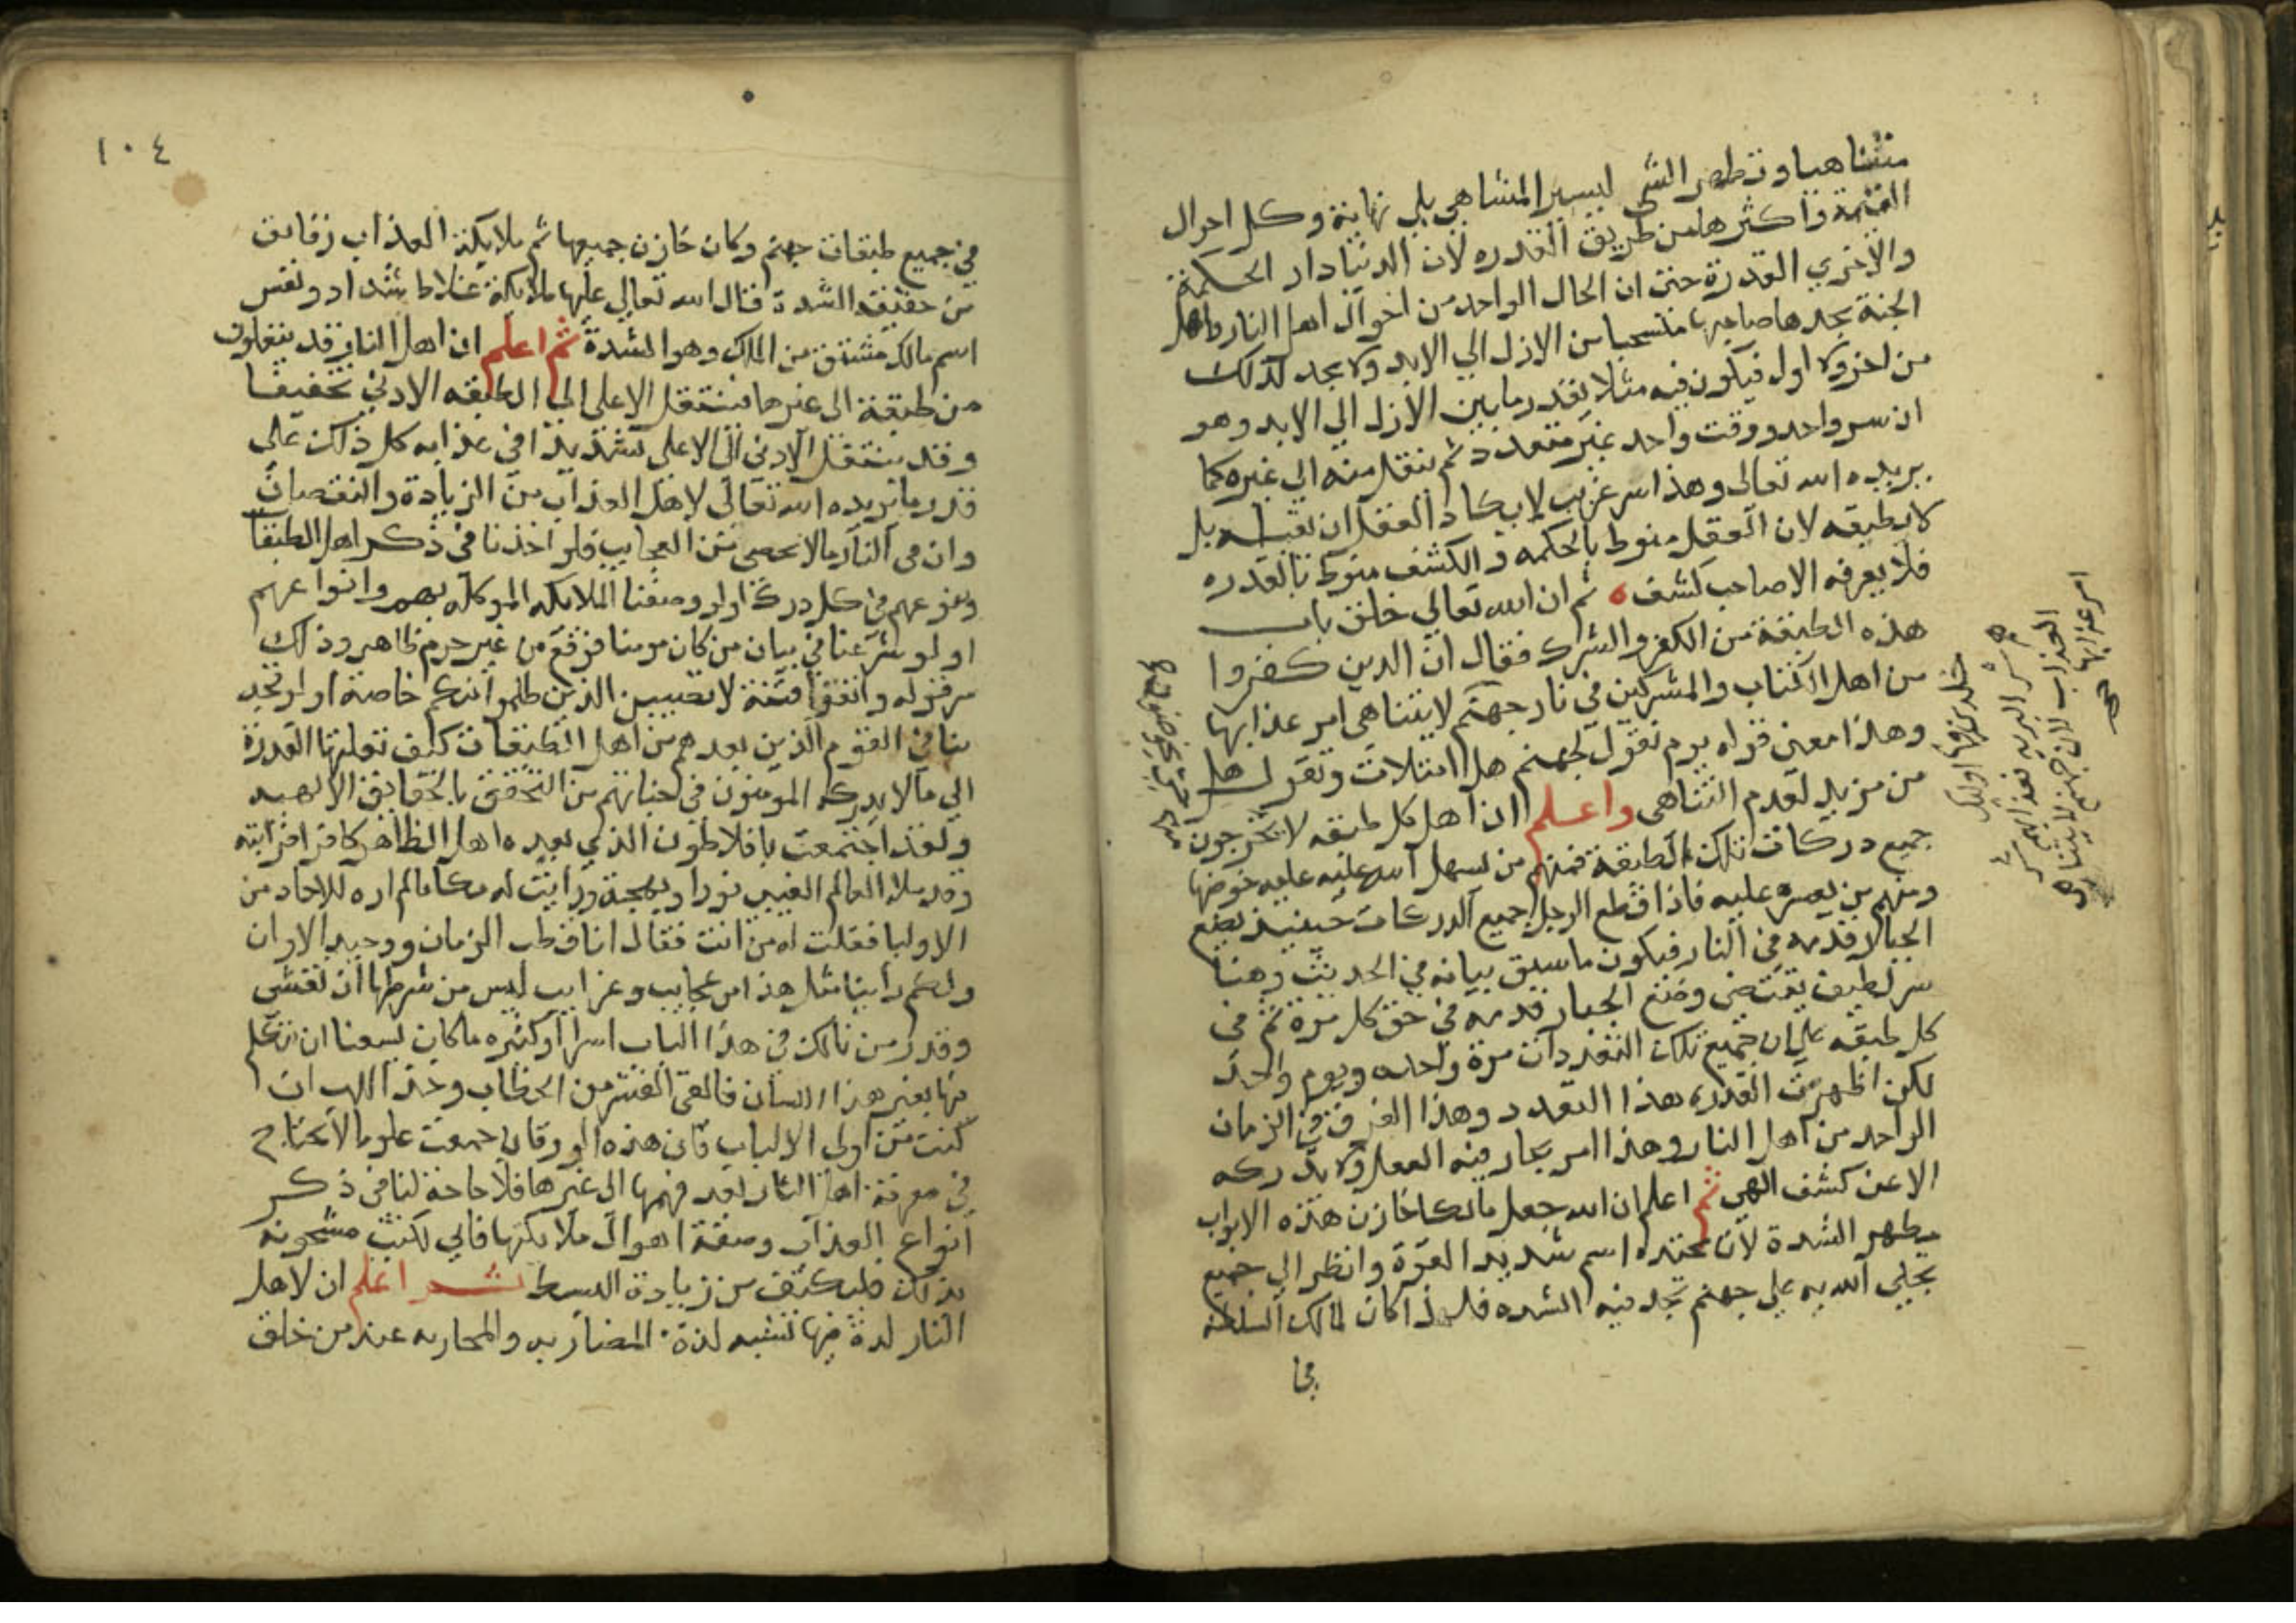 متناهيا وتظهر الشي ليسير المتناهي بلي نهاية وكل احوال
القيمة واكثرها من طريق القدره لان الدنيا دار الحكمة
والاخري القدرة حتى ان الحال الواحد من احوال اهل النار واهل
الجنة يجدها صاحبها منسحبا من الازل الي الابد ولا يجد لذلك
من اخر ولا اول فيكون فيه مثلا بقدر ما بين الازل الي الابد وهو
ان سر واحد ووقت واحد غير متعدد ثم ينقل منه الي غيره كما
يريده الله تعالى وهذا سر غريب لا يكاد العقل ان يقبله بل
لا يطيقه لان العقل منوط بالحكمه والكشف منوط بالقدره
فلا يعرفه الا صاحب كشف ثم ان الله تعالي خلق باب
هذه الطبقة من الكفر والشرك فقال ان الدين كفروا
من اهل الكتاب والمشركين في نار جهنم لا يتناهى امر عذابها
وهذا معنى قوله يوم نقول لجهنم هل امتلات وتقول هل
من مزيد لعدم التناهى واعلم ان اهل كل طبقه لا يخرجون
جميع دركات تلك الطبقة فمنهم من يسهل الله عليه خوضها
ومنهم من يعسره عليه فاذا قطع الرجل جميع الدركات حينيذ يضع
الجبار قدمه في النار فيكون ما سبق بيانه في الحديث وهنا
سر لطيف يقتضى وضع الجبار قدمه في حق كل مرة ثم في
كل طبقه على ان جميع تلك التعددات مرة واحده ويوم واحد
لكن اظهرت القدره هذا التعدد وهذا الفرق في الزمان
الواحد من اهل النار وهذا امر يحار فيه العقل ولا يدركه
الا عن كشف الهي ثم اعلم ان الله جعل مالكا خازن هذه الابواب
مظهر الشدة لان محتده اسم شديد القوة وانظر الي جميع
تجلي الله به على جهنم تجد فيه الشده فلهذا كان لمالك السلطنة
في
خالدين فيها اوليك
هم شر البريه
العذاب لان جهنم لا يتناهى
امر عذابها صح
١٠٤
في جميع طبقات جهنم وكان خازن جميعها ثم ملايكة العذاب رقايق
من حقيقة الشدة قال الله تعالي عليها ملايكة غلاظ شداد ونفس
اسم مالك مشتق من الملك وهو الشدة ثم اعلم ان اهل النار قد ينقلون
من طبقة الى غيرها فينتقل الاعلى الى الطبقه الادنى تخفيفا
وقد ينتقل الادنى الى الاعلى تشديدا في عذابه كل ذلك على
قدر ما يريده الله تعالى لاهل العذاب من الزيادة والنقصان
وان في النار ما لا يحصى من العجايب فلو اخذنا في ذكر اهل الطبقا
وتنوعهم في كل دركة او لو وصفنا الملايكه الموكله بهم وانواعهم
او لو شرعنا في بيان من كان مومنا فوقع من غير جرم ظاهر وذلك
سر قوله واتقوا فتنة لا تصيبن الذين ظلموا منكم خاصة او لو تجد
بنا في القوم الذين بعدهم من اهل الطبقات كيف نقلتها القدرة
الي ما لا يدركه المومنون في جناتهم من التحقق بالحقايق الالهيه
ولقد اجتمعت بافلاطون الذي يعده اهل الظاهر كافرا فرايته
وقد ملا العالم الغيبي نورا وبهجة ورايت له مكانا لم اره للاحاد من
الاوليا فقلت له من انت فقال انا قطب الزمان ووحيد الاوان
ولكم راينا مثل هذا من عجايب وغرايب ليس من شرطها ان تفشى
وقد رمزنا لك في هذا الباب اسرارا كثيره ما كان يسعنا ان نتكلم
فيها بغير هذا اللسان فالق القشر من الخطاب وخذ اللب ان
كنت من اولى الالباب فان هذه الورقات جمعت علوما لا تحتاج
في معرفة اهل النار بعد فهمها الى غيرها فلا حاجة لنا في ذكر
انواع العذاب وصفة اهوال ملايكتها فالي لكتب مشحونه
بذلك فليكتف من زيادة البسط ثم اعلم ان لاهل
النار لذة فيها تشبه لذة المضاربه والمحاربه عند من خلق